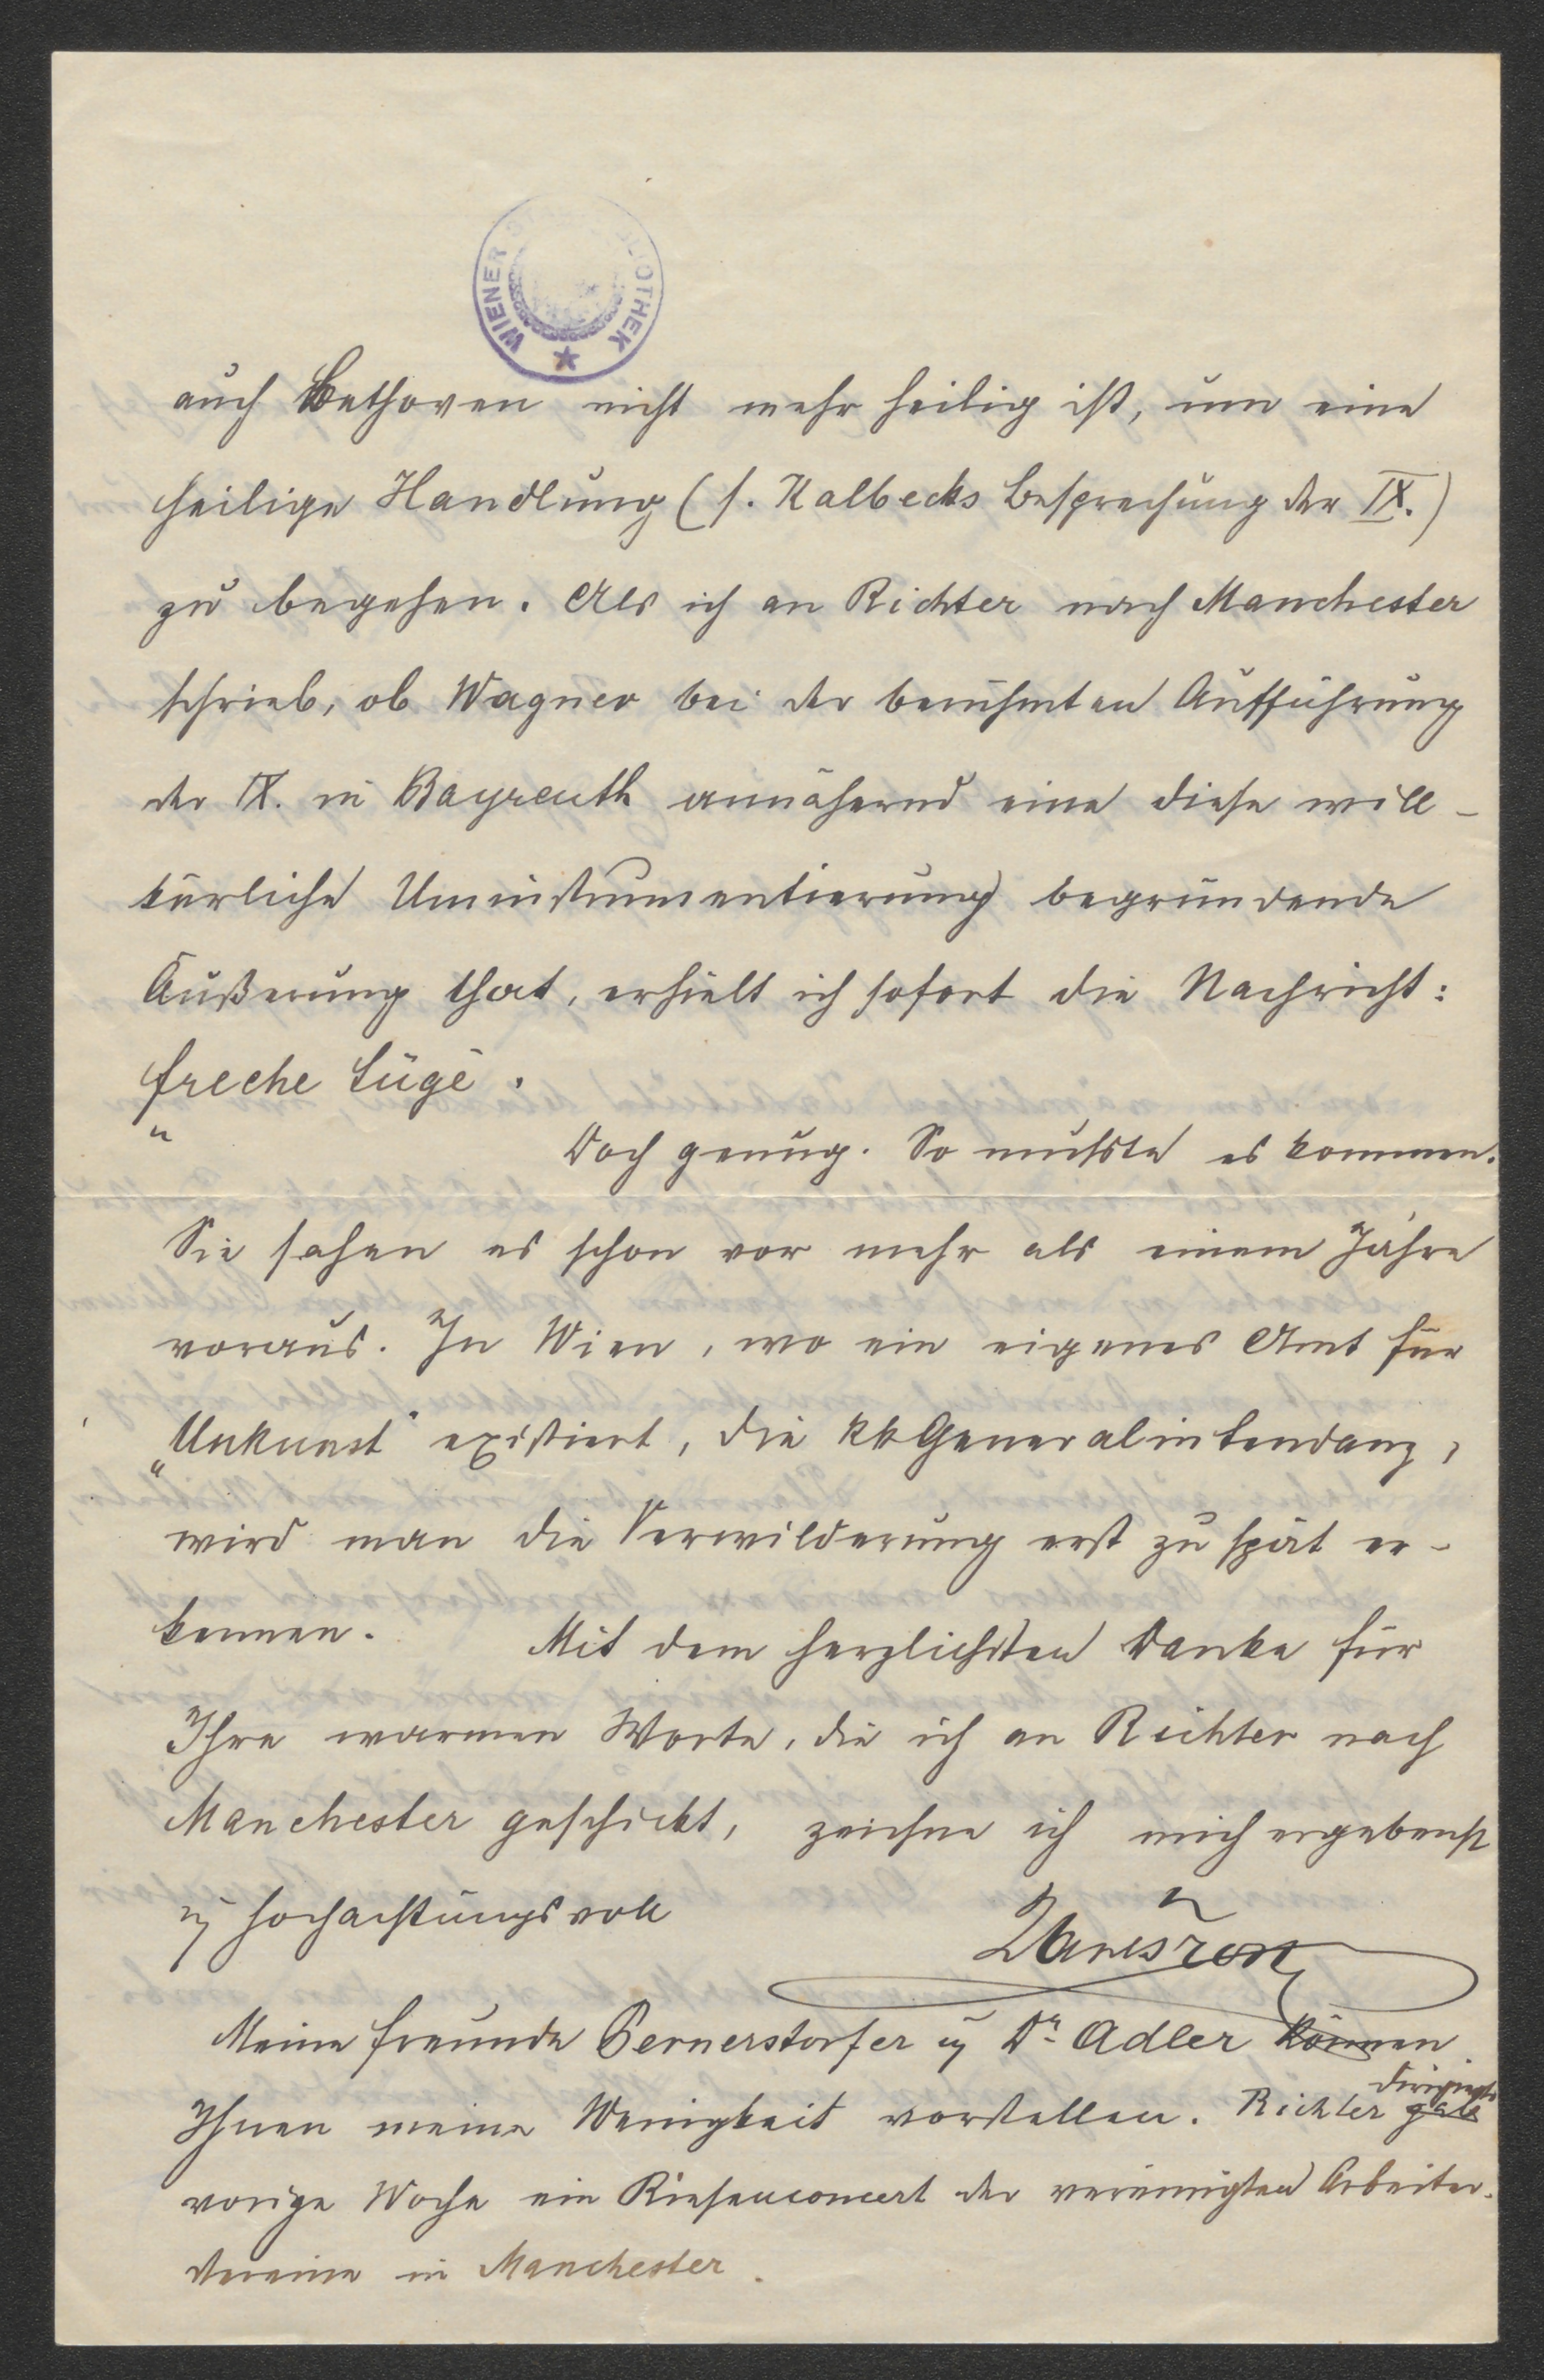 WIENER BIBLIOTHEK
auch Bethoven nicht mehr heilig ist, um eine
heilige Handlung (s. Kalbecks Besprechung der IX.)
zu begehen. Als ich an Richter nach Manchester
schrieb, ob Wagner bei der berühmten Aufführung
der IX. in Bayreuth annähernd eine diese will-
kürliche Uminstrumentierung begründende
Äußerung that, erhielt ich sofort die Nachricht:
„freche Lüge“.
Doch genug. So mußste es kommen.
Sie sahen es schon vor mehr als einem Jahre
voraus. In Wien, wo ein eigenes Amt für
„Unkunst“ existiert, die kk Generalintendanz,
wird man die Verwilderung erst zu spät er-
kennen. Mit dem herzlichsten Danke für
Ihre warmen Worte, die ich an Richter nach
Manchester geschickt, zeichne ich mich ergebenst
u hochachtungsvoll
Meine Freunde Pernerstorfer u Dr. Adler können
dirigirte
Ihnen meine Wenigkeit vorstellen. Richter gab
vorige Woche ein Riesenconcert der vereinigten Arbeiter-
vereine in Manchester.